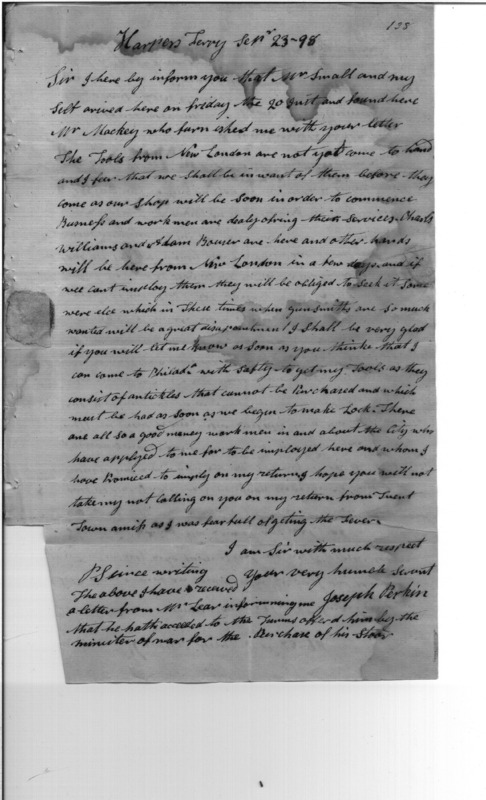 135
Harpers Ferry Sepr 23-98
Sir I here by inform you that Mr Small and my
Self arived here on friday the 20 Inst and found here
Mr Mackey who furn ished me with your letter
The Tools from New London are not yot come to hand
and I fear that we shall be in want of them before they
come as our Shop will be soon in order to commence
Business and work men are dealy ofring their Services. Charls
Williams and Adam Bouer are here and other hands
will be here from New London in a few days. and if
we cant imploy them they will be obliged to Seek it Some
were else which in These times when gunsmiths are so much
wanted will be a great disapointment I shall be very glad
if you will let me Know as soon as you thinke that I
can come to Philada with safty to get my Tools as they
consist of antickles that cannot be Purchased and which
must be had as soon as we begin to make Lock. There
are all so a good meney work men in and about the City who
have applyed to me for to be imployed here and whom I
have Promiced to imploy on my return I hope you will not
take my not Calling on you on my return from
Town amiss as I was fearfull of geting the Fever.
I am Sir with much respect
Your very humble Servnt
Joseph Perkin
PS since writing
The above I have received
a letter from Mr Lear informining me
that he hath acceeded to the Turms offerd him by the
minister of war for the Perchase of his Stoar